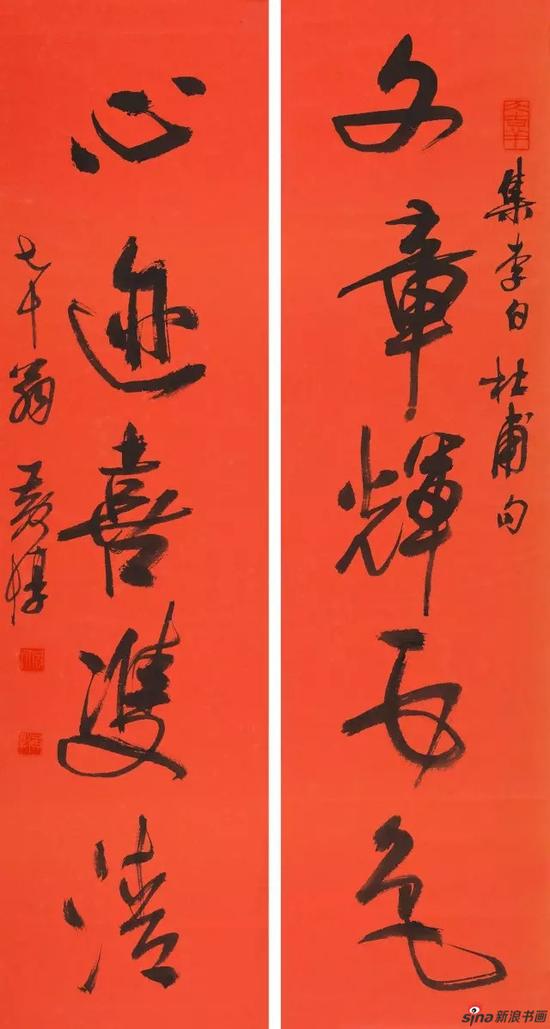 集李白杜甫句
文章輝五色
心迹喜雙清
七十翁黄惇
sina新浪书画